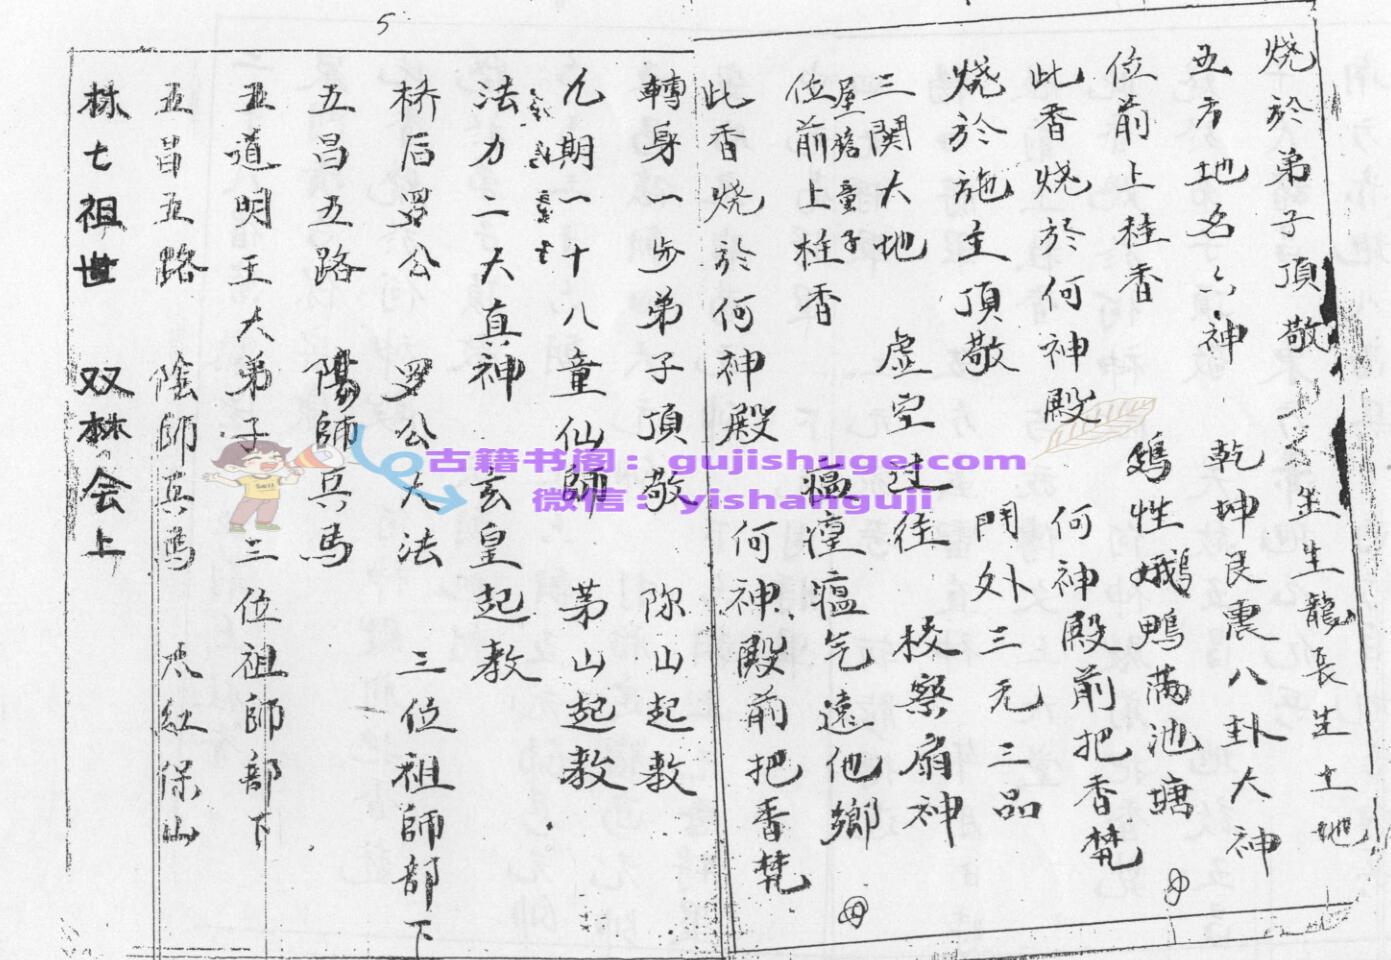 5
烧於弟子頂敬 生生龍長生土地
五方地名六神 乾坤艮震八卦大神
位前上桂香 鷄性鵝鸭满池塘
此香烧於何神殿 何神殿前把香焚
烧於施主頂敬 門外三元三品
三関大地 虚空过往 校察扇神
屋簷童子
位前上桂香 瘟瘟氣遠他鄉
此香烧於何神殿 何神殿前把香焚
轉身一步弟子頂敬 你山起教
九期一十八童仙師 茅山起教
法力二大真神 玄皇起教
桥后罗公 罗公大法 三位祖師部下
五昌五路 陽師兵馬
五道明王大弟子 三位祖師部下
五昌五路 陰師兵馬 太紅保山
林七祖世 双林会上
古籍书阁：gujishuge.com
微信：yishanguji